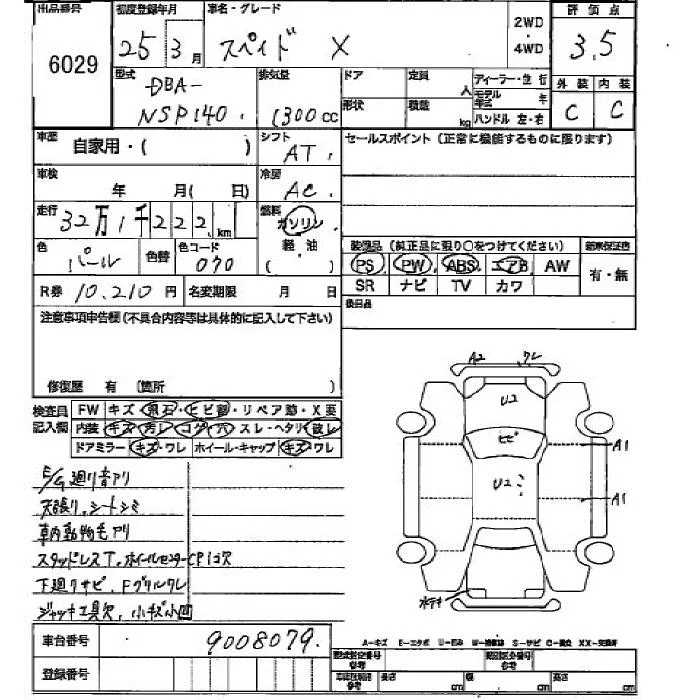 出品番号 初度登録年月 車名・グレード 2WD・4WD 評価点
6029 25年3月 スペイド X 3.5
型式 DBA-NSP140 排気量 1300cc ドア 形状 定員 人 積載 kg ディーラー・並行 モデル年式 年 ハンドル 左・右 外装 C 内装 C
車歴 自家用・( ) シフト AT
セールスポイント (正常に機能するものに限ります)
車検 年 月( 日) 冷房 AC
走行 32万1千222km 燃料 ガソリン 軽油 ( )
色 パール 色替 色コード 070
装備品 (純正品に限り○をつけてください) 新車保証書
PS PW ABS エアB AW 有・無
SR ナビ TV カワ
R券 10,210円 名変期限 月 日
後日品
注意事項申告欄(不具合内容等は具体的に記入して下さい)
修復歴 有 (箇所 )
検査員記入欄 FW キズ・飛石・ヒビ割・リペア跡・X要
内装 キズ 汚レ コゲ 穴 スレ・ヘタリ 破レ
ドアミラー キズ・ワレ ホイール・キャップ キズ・ワレ
E/G廻り音アリ
天張り,シートシミ
車内動物毛アリ
スタッドレスT,ホイールセンターCP1コ欠
下廻りサビ,Fグリルワレ
ジャッキ工具欠,小キズ小凹
A2 ワレ
U2
ヒビ
A1
U2
A1
車台番号 9008079
登録番号
A-キズ E-エクボ U-凹ミ W-補修跡 S-サビ C-腐食 XX-交換済
型式指定番号 参考 類別区分番号 参考
長さ cm 幅 cm 高さ cm